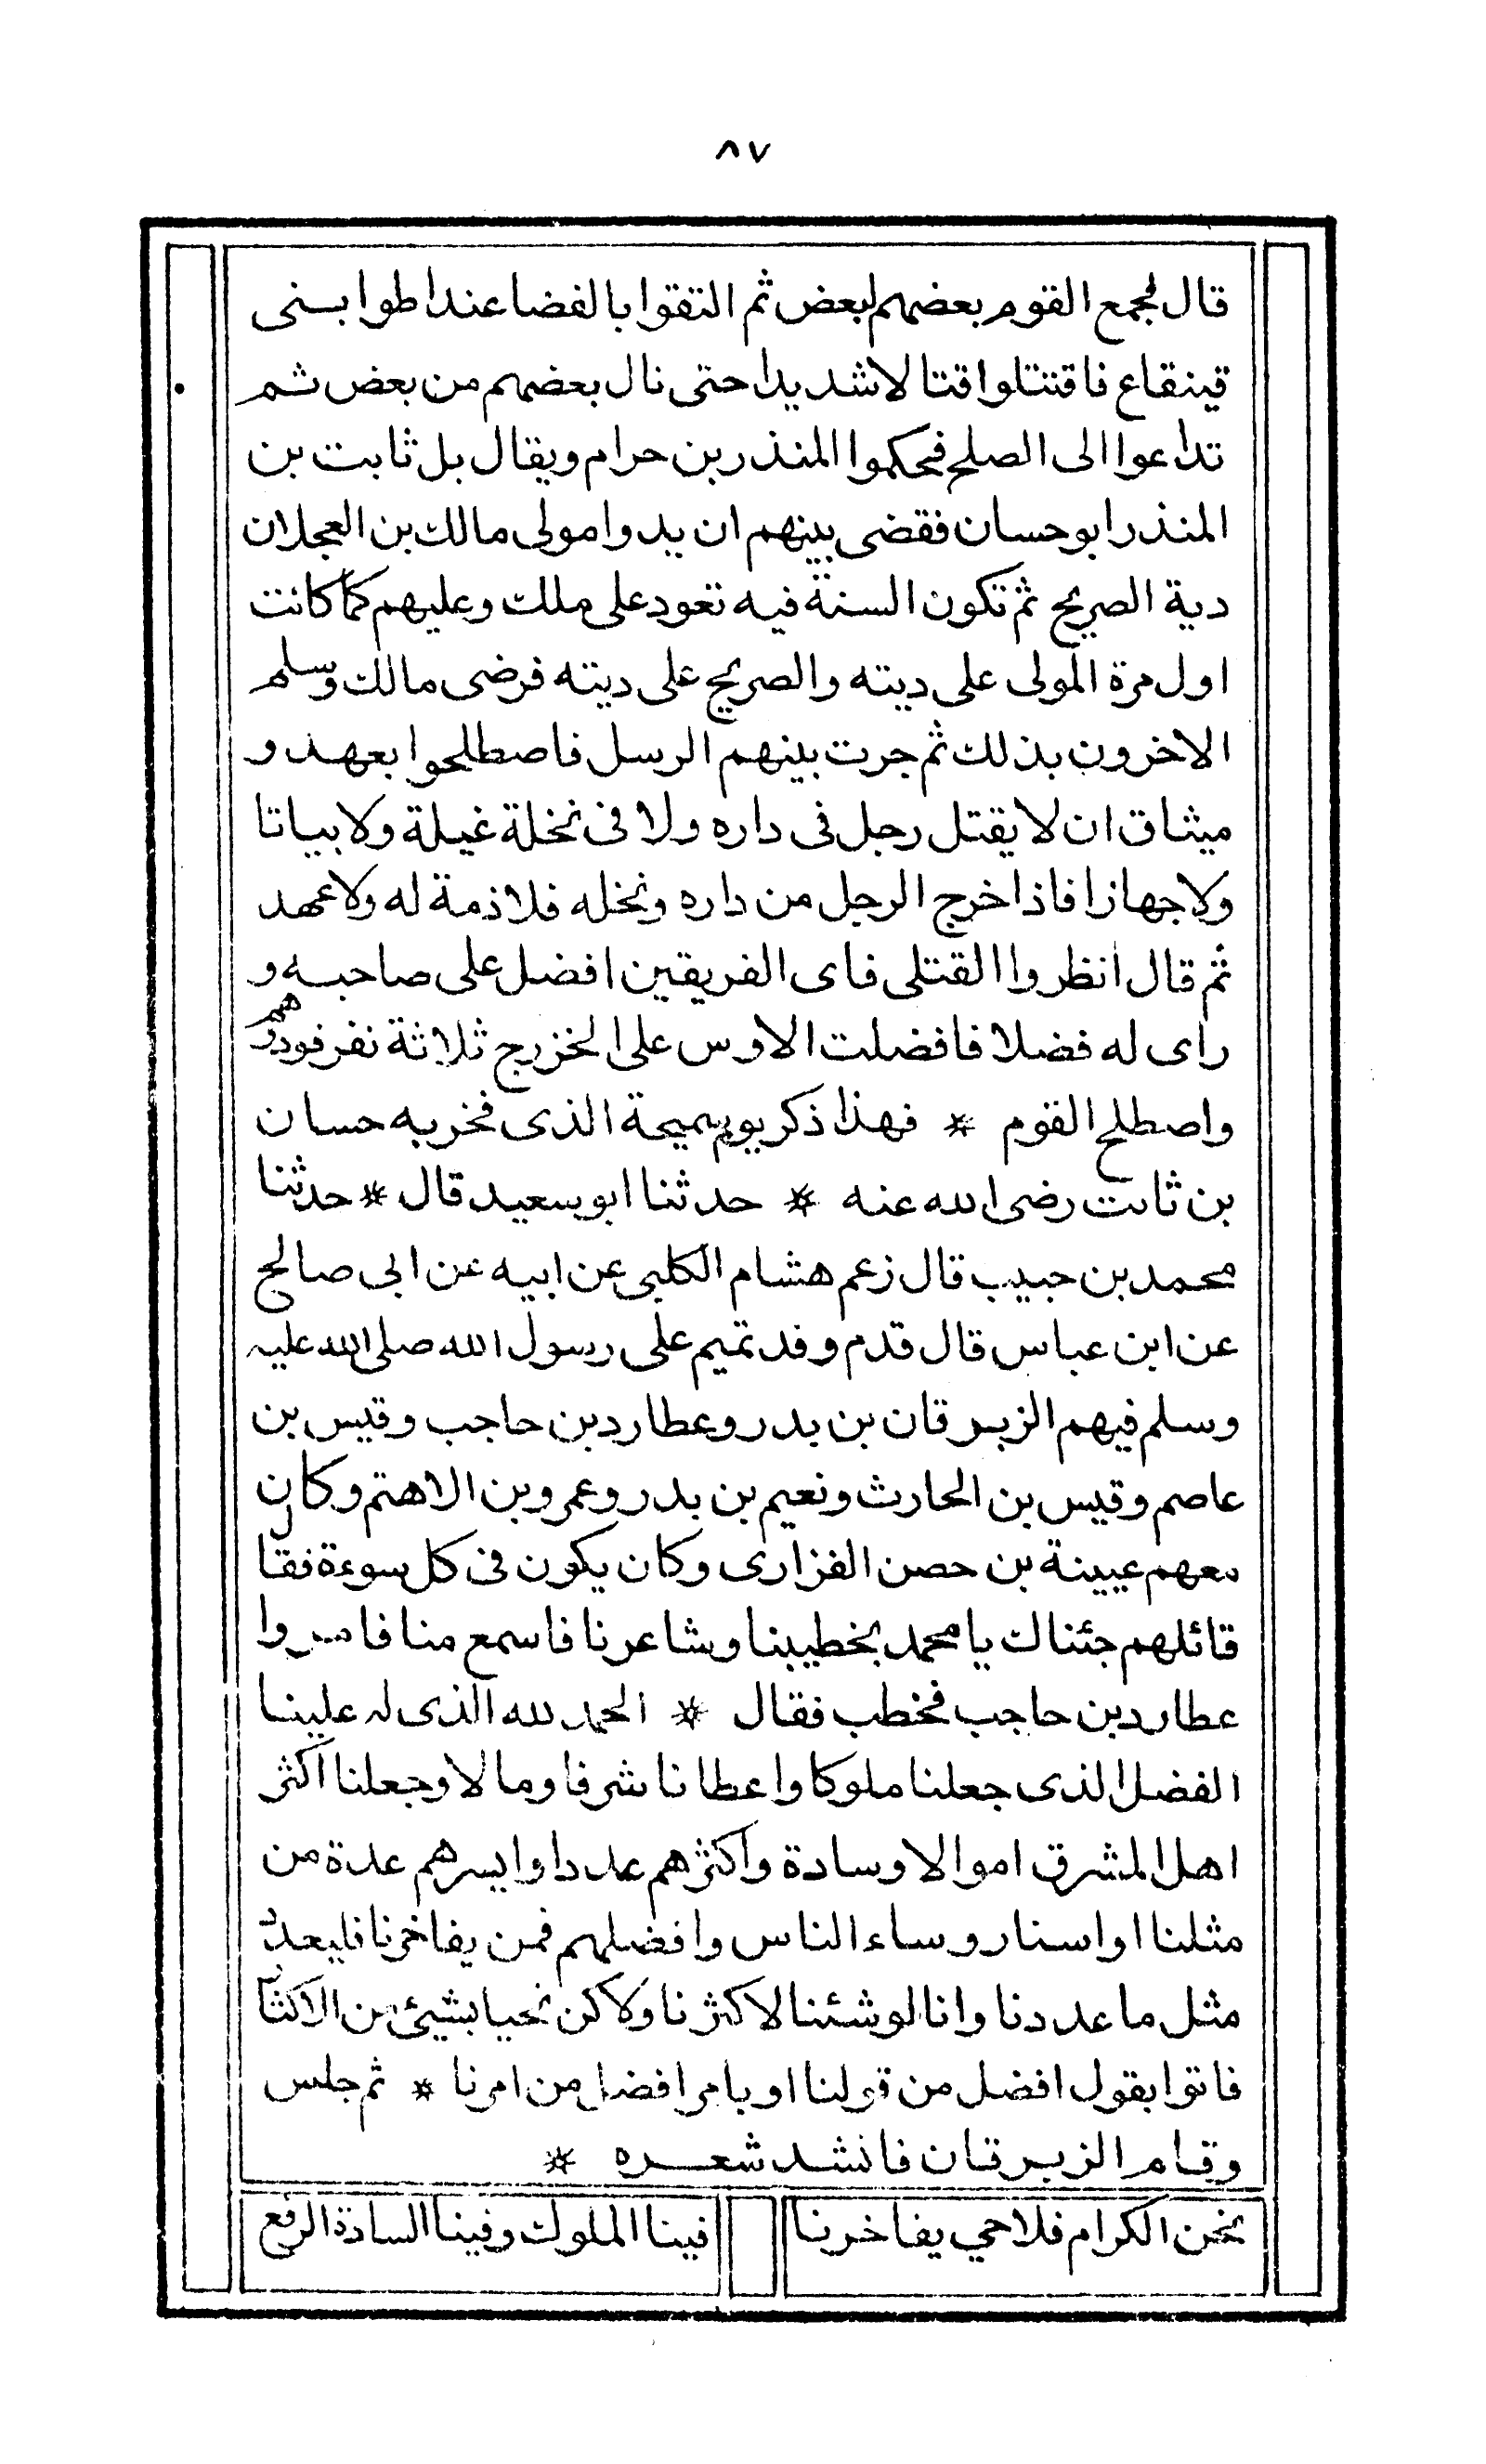 ٨٧
قال لجمع القوم بعضهم لبعض ثم التقوا بالفضا عند اطوا بنى
قينقاع فاقتتلوا قتالا شديدا حتى نال بعضهم من بعض ثم
تداعوا الى الصلح فحكموا المنذر بن حرام ويقال بل ثابت بن
المنذر ابو حسان فقضى بينهم ان يدوا مولى مالك بن العجلان
دية الصريح ثم تكون السنة فيه تعود على ملك وعليهم كما كانت
اول مرة المولى على ديته والصريح على ديته فرضى مالك وسلم
الاخرون بذلك ثم جرت بينهم الرسل فاصطلحوا بعهد و
ميثاق ان لا يقتل رجل فى داره ولا فى نخلة غيلة ولا بياتا
ولا جهازا فاذا خرج الرجل من داره ونخله فلا ذمة له ولا عهد
ثم قال انظروا القتلى فاى الفريقين افضل على صاحبه و
راى له فضلا فافضلت الاوس على الخزرج ثلاثة نفر فودوهم
واصطلح القوم * فهذا ذكر يوم سميحة الذى فخر به حسان
بن ثابت رضى الله عنه * حدثنا ابو سعيد قال * حدثنا
محمد بن حبيب قال زعم هشام الكلبى عن ابيه عن ابى صالح
عن ابن عباس قال قدم وفد تميم على رسول الله صلى الله عليه
وسلم فيهم الزبرقان بن بدر وعطارد بن حاجب وقيس بن
عاصم وقيس بن الحارث ونعيم بن بدر وعمرو بن الاهتم وكان
معهم عيينة بن حصن الفزارى وكان يكون فى كل سوءة فقال
قائلهم جئناك يا محمد بخطيبنا وشاعرنا فاسمع منا فامروا
عطارد بن حاجب فخطب فقال * الحمد لله الذى له علينا
الفضل الذى جعلنا ملوكا واعطانا شرفا ومالا وجعلنا اكثر
اهل المشرق اموالا وسادة واكثرهم عددا وايسرهم عدة من
مثلنا اواسنا روساء الناس وافضلهم فمن يفاخرنا فليعدد
مثل ما عددنا وانا لو شئنا لاكثرنا ولاكن نحيا بشيئ من الاكثار
فاتوا بقول افضل من قولنا او بامر افضل من امرنا * ثم جلس
وقام الزبرقان فانشد شعره *
نحن الكرام فلا حي يفاخرنا فينا الملوك وفينا السادة الرفع